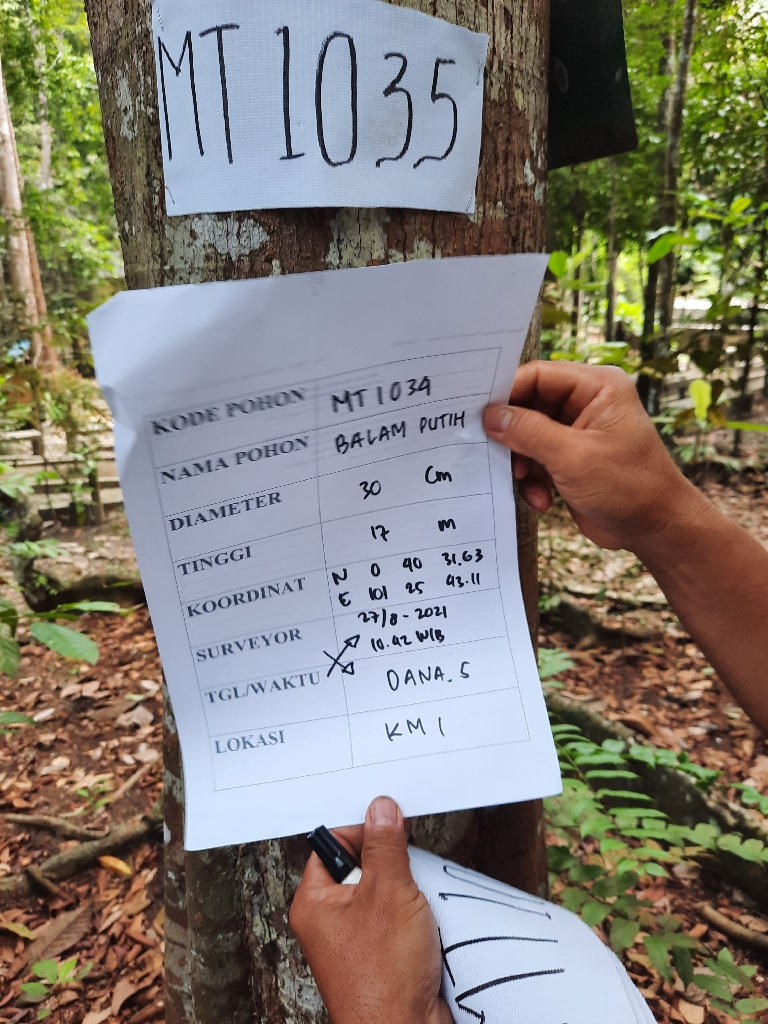 MT 1035
KODE POHON MT 1034
NAMA POHON BALAM PUTIH
DIAMETER 30 Cm
TINGGI 17 m
KOORDINAT N 0 40 31.63
E 101 25 43.11
SURVEYOR 27/8-2021
10.42 WIB
TGL/WAKTU DANA.S
LOKASI KM 1